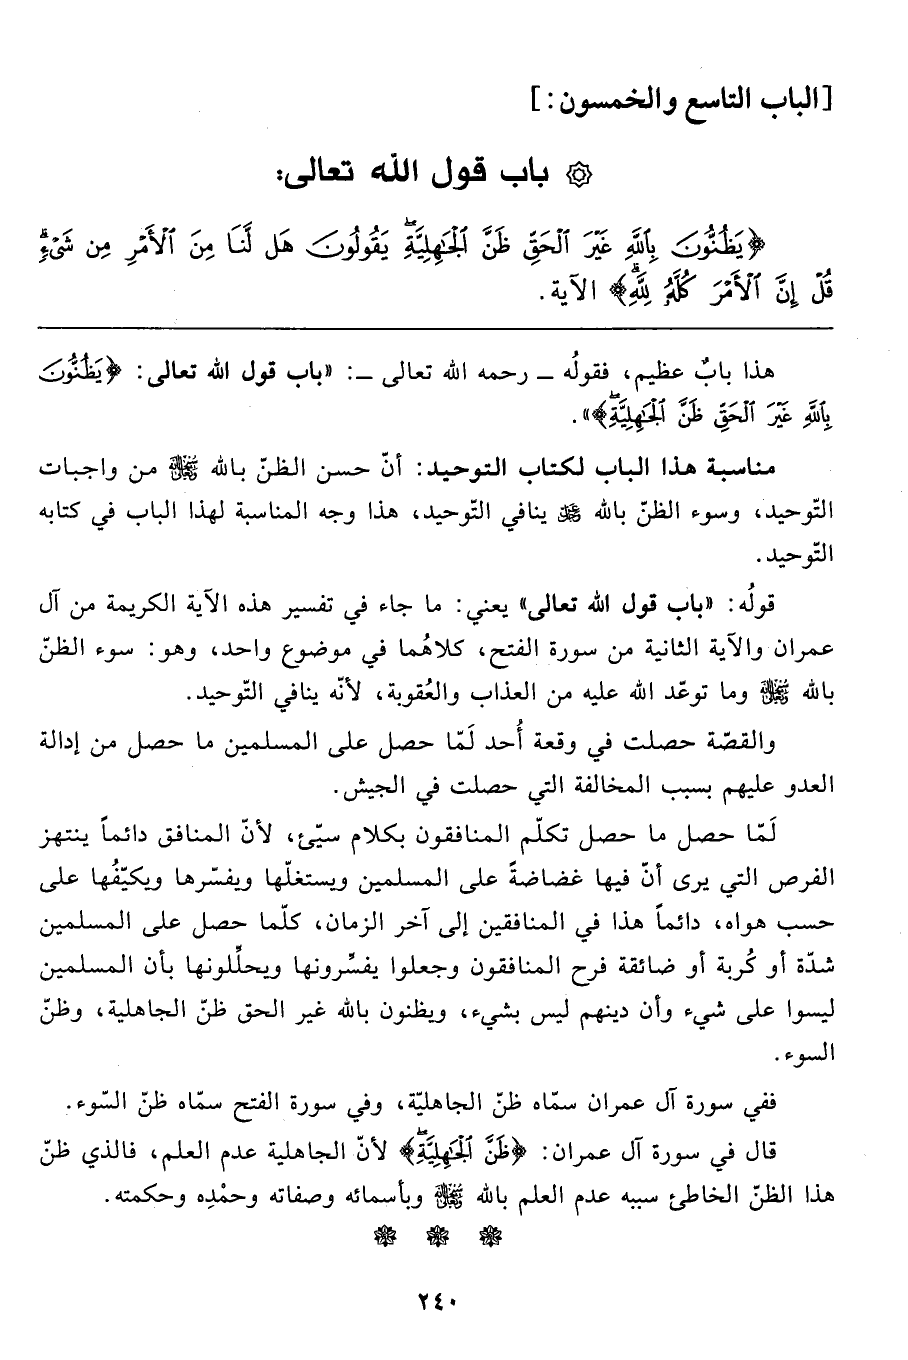 [الباب التاسع والخمسون:]
۞ باب قول الله تعالى:
﴿يَظُنُّونَ بِٱللَّهِ غَيْرَ ٱلْحَقِّ ظَنَّ ٱلْجَٰهِلِيَّةِۖ يَقُولُونَ هَل لَّنَا مِنَ ٱلْأَمْرِ مِن شَىْءٍۗ
قُلْ إِنَّ ٱلْأَمْرَ كُلَّهُۥ لِلَّهِۗ﴾ الآية.
هذا بابٌ عظيم، فقولُه ـ رحمه الله تعالى ـ: «باب قول الله تعالى: ﴿يَظُنُّونَ
بِٱللَّهِ غَيْرَ ٱلْحَقِّ ظَنَّ ٱلْجَٰهِلِيَّةِۖ﴾».
مناسبة هذا الباب لكتاب التوحيد: أنّ حسن الظنّ بالله ﷻ من واجبات
التّوحيد، وسوء الظنّ بالله ﷻ ينافي التّوحيد، هذا وجه المناسبة لهذا الباب في كتابه
التّوحيد.
قولُه: «باب قول الله تعالى» يعني: ما جاء في تفسير هذه الآية الكريمة من آل
عمران والآية الثانية من سورة الفتح، كلاهُما في موضوع واحد، وهو: سوء الظنّ
بالله ﷻ وما توعّد الله عليه من العذاب والعُقوبة، لأنّه ينافي التّوحيد.
والقصّة حصلت في وقعة أُحد لَمّا حصل على المسلمين ما حصل من إدالة
العدو عليهم بسبب المخالفة التي حصلت في الجيش.
لَمّا حصل ما حصل تكلّم المنافقون بكلام سيّئ، لأنّ المنافق دائماً ينتهز
الفرص التي يرى أنّ فيها غضاضةً على المسلمين ويستغلّها ويفسّرها ويكيّفُها على
حسب هواه، دائماً هذا في المنافقين إلى آخر الزمان، كلّما حصل على المسلمين
شدّة أو كُربة أو ضائقة فرح المنافقون وجعلوا يفسِّرونها ويحلِّلونها بأن المسلمين
ليسوا على شيء وأن دينهم ليس بشيء، ويظنون بالله غير الحق ظنّ الجاهلية، وظنّ
السوء.
ففي سورة آل عمران سمّاه ظنّ الجاهليّة، وفي سورة الفتح سمّاه ظنّ السّوء.
قال في سورة آل عمران: ﴿ظَنَّ ٱلْجَٰهِلِيَّةِۖ﴾ لأنّ الجاهلية عدم العلم، فالذي ظنّ
هذا الظنّ الخاطئ سببه عدم العلم بالله ﷻ وبأسمائه وصفاته وحمْدِه وحكمته.
٢٤٠